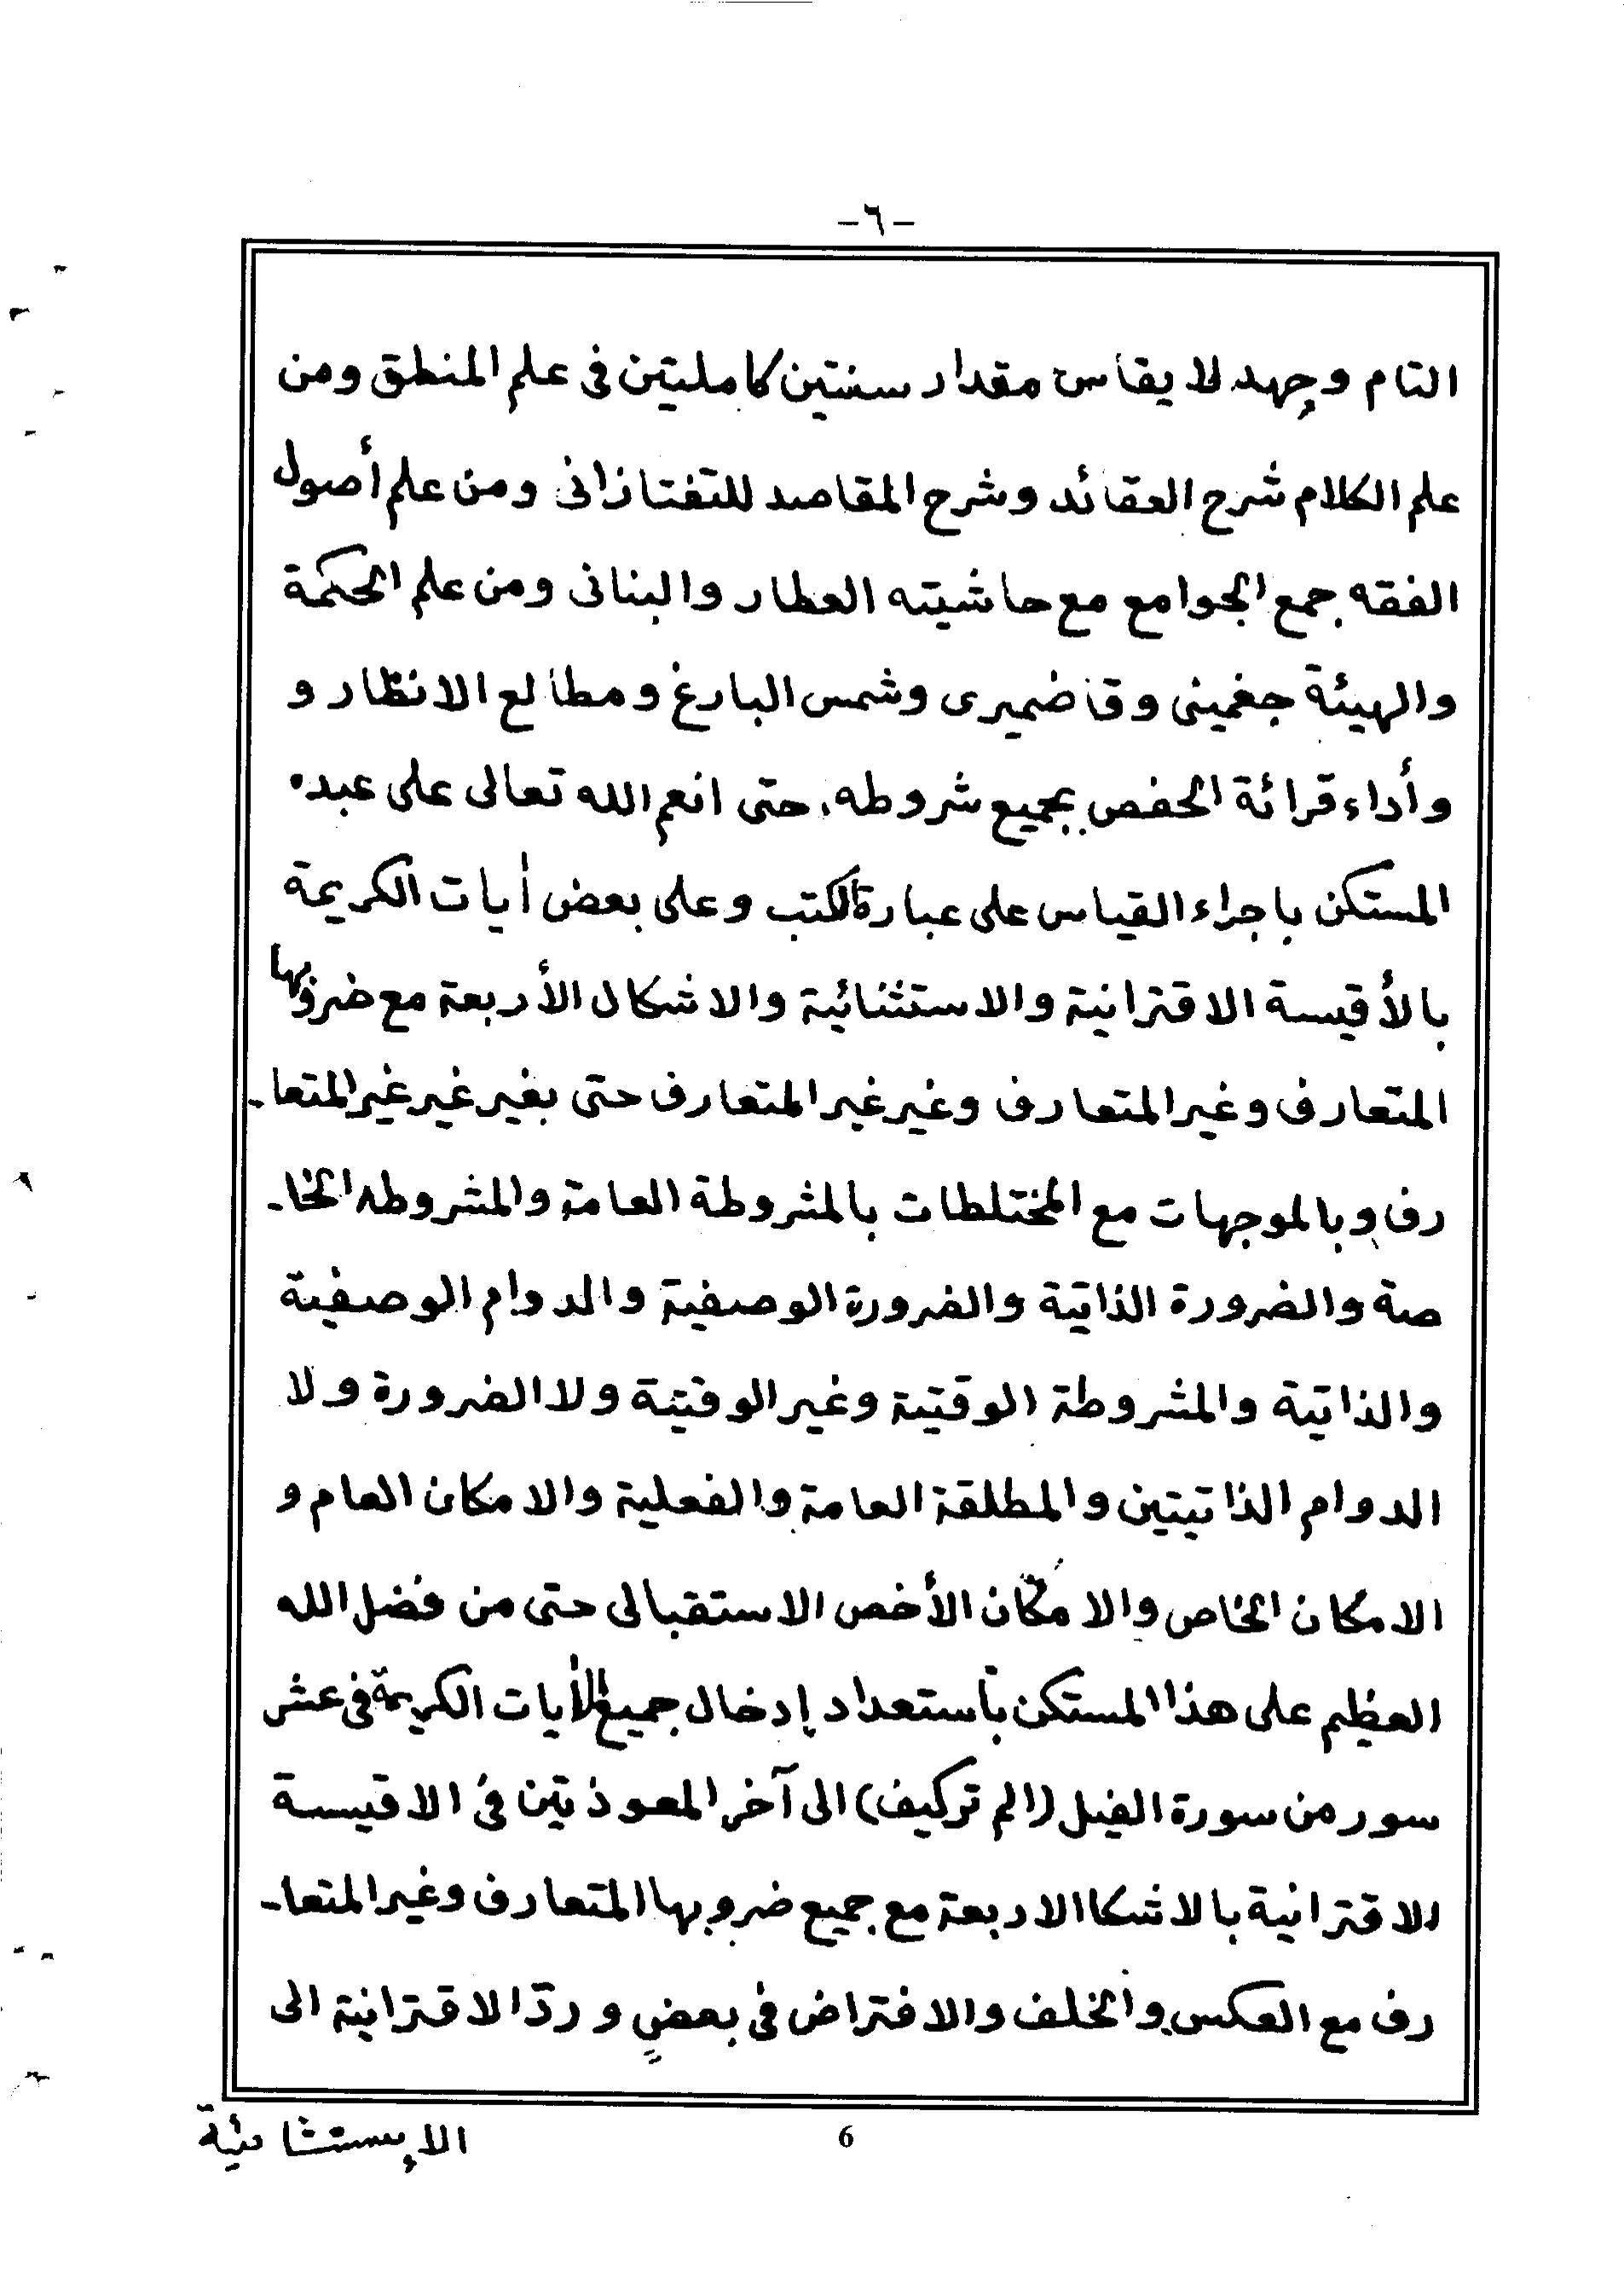 -٦-
التام وجهد لا يقاس مقدار سنتين كاملتين فى علم المنطق ومن
علم الكلام شرح العقائد وشرح المقاصد للتفتازانى ومن علم أصول
الفقه جمع الجوامع مع حاشيته العطار والبنانى ومن علم الحكمة
والهيئة جغمينى وقاضميرى وشمس البازغ ومطالع الانظار و
وأداء قرائة الحفص بجميع شروطه، حتى انعم الله تعالى على عبده
المستكن باجراء القياس على عبارة الكتب وعلى بعض أيات الكريمة
بالأقيسة الاقترانية والاستثنائية والاشكال الأربعة مع ضروبها
المتعارف وغير المتعارف وغير غير المتعارف حتى بغير غير غير المتعا-
رف وبالموجهات مع المختلطات بالمشروطة العامة والمشروطه الخا-
صة والضرورة الذاتية والضرورة الوصفية والدوام الوصفية
والذاتية والمشروطة الوقتية وغير الوقتية ولا الضرورة ولا
الدوام الذاتيتين والمطلقة العامة والفعلية والامكان العام و
الامكان الخاص والامكان الأخص الاستقبالى حتى من فضل الله
العظيم على هذا المستكن بأستعداد إدخال جميع الأيات الكريمة فى عشر
سور من سورة الفيل (الم تركيف) الى آخر المعوذتين فى الاقيسة
الاقترانية بالاشكا الاربعة مع جميع ضروبها المتعارف وغير المتعا-
رف مع العكس والخلف والافتراض فى بعضٍ وردّ الاقترانية الى
6
الإستثائية